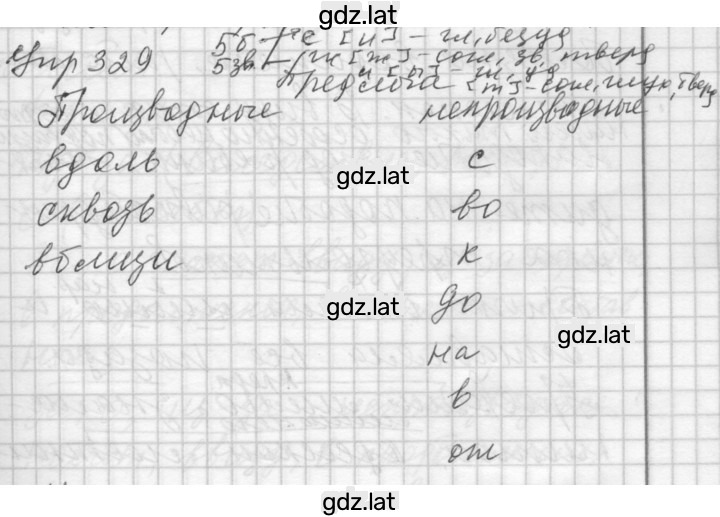 gdz.lat
Упр 329
5б е [и] - гл, безуд
5зв ж [ж] - согл, зв, тверд
Предлоги [т] - согл, глух, тверд
Производные непроизводные
вдоль с
gdz.lat
сквозь во
вблизи к
gdz.lat
до
gdz.lat
на
в
от
gdz.lat